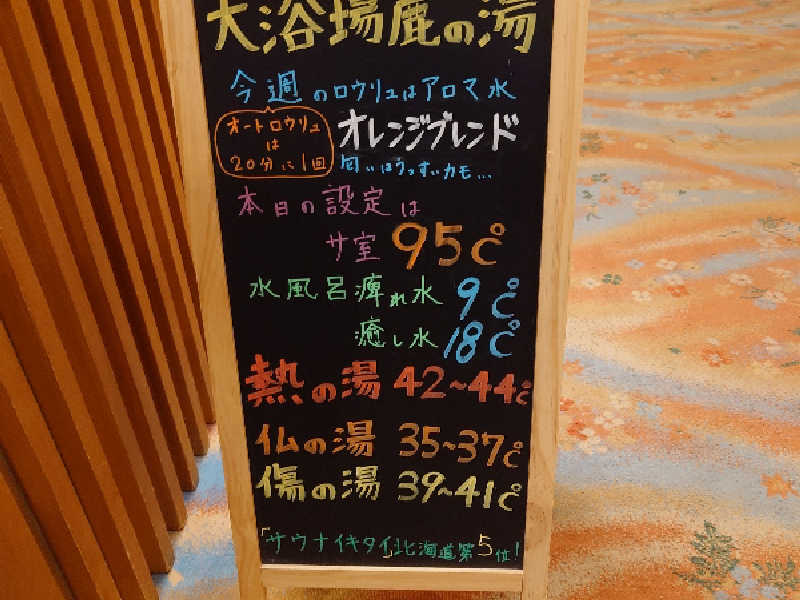 大浴場鹿の湯
今週のロウリュはアロマ水
オートロウリュ
は
20分に1回
オレンジブレンド
匂いはうっすぃカモ...
本日の設定は
サ室 95℃
水風呂痺れ水 9℃
癒し水 18℃
熱の湯 42~44℃
仏の湯 35~37℃
傷の湯 39~41℃
「サウナイキタイ」北海道第5位!